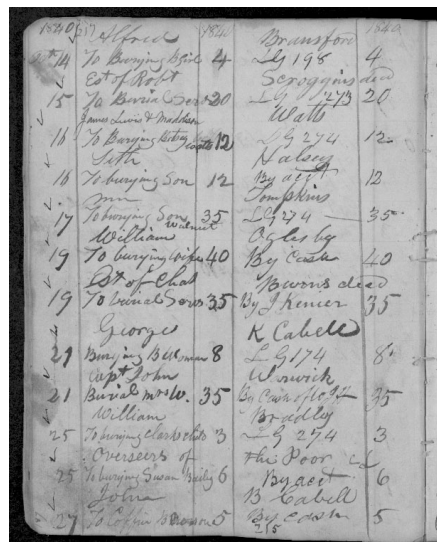 1840 1840 1840
Alfred Bransford
14 To Burying B girl 4 LG 198 4
Est of Robt Scroggins dead
15 To Burial Serv 20 LG 273 20
James Lewis & Maddison Watts
16 To Burying Betsey Coats 12 LG 274 12
Seth Halsey
16 To burying Son 12 By acct 12
Tompkins
17 To burying Son 35 LG 274 35
Walnut
William Oglesby
19 To burying wife 40 By Cash 40
Est of Chas dead
19 To burial Serv 35 By J 35
George K Cabell
21 Burying B Woman 8 LG 174 8
Capt John Warwick
21 Burial Mrs W. 35 By Cash 35
William Bradley
25 To burying Clarks child 3 LG 274 3
Overseers of the Poor
25 To burying Susan Bailey 6 By acct 6
John B Cabell
27 To Coffin B 5 By Cash 5
275